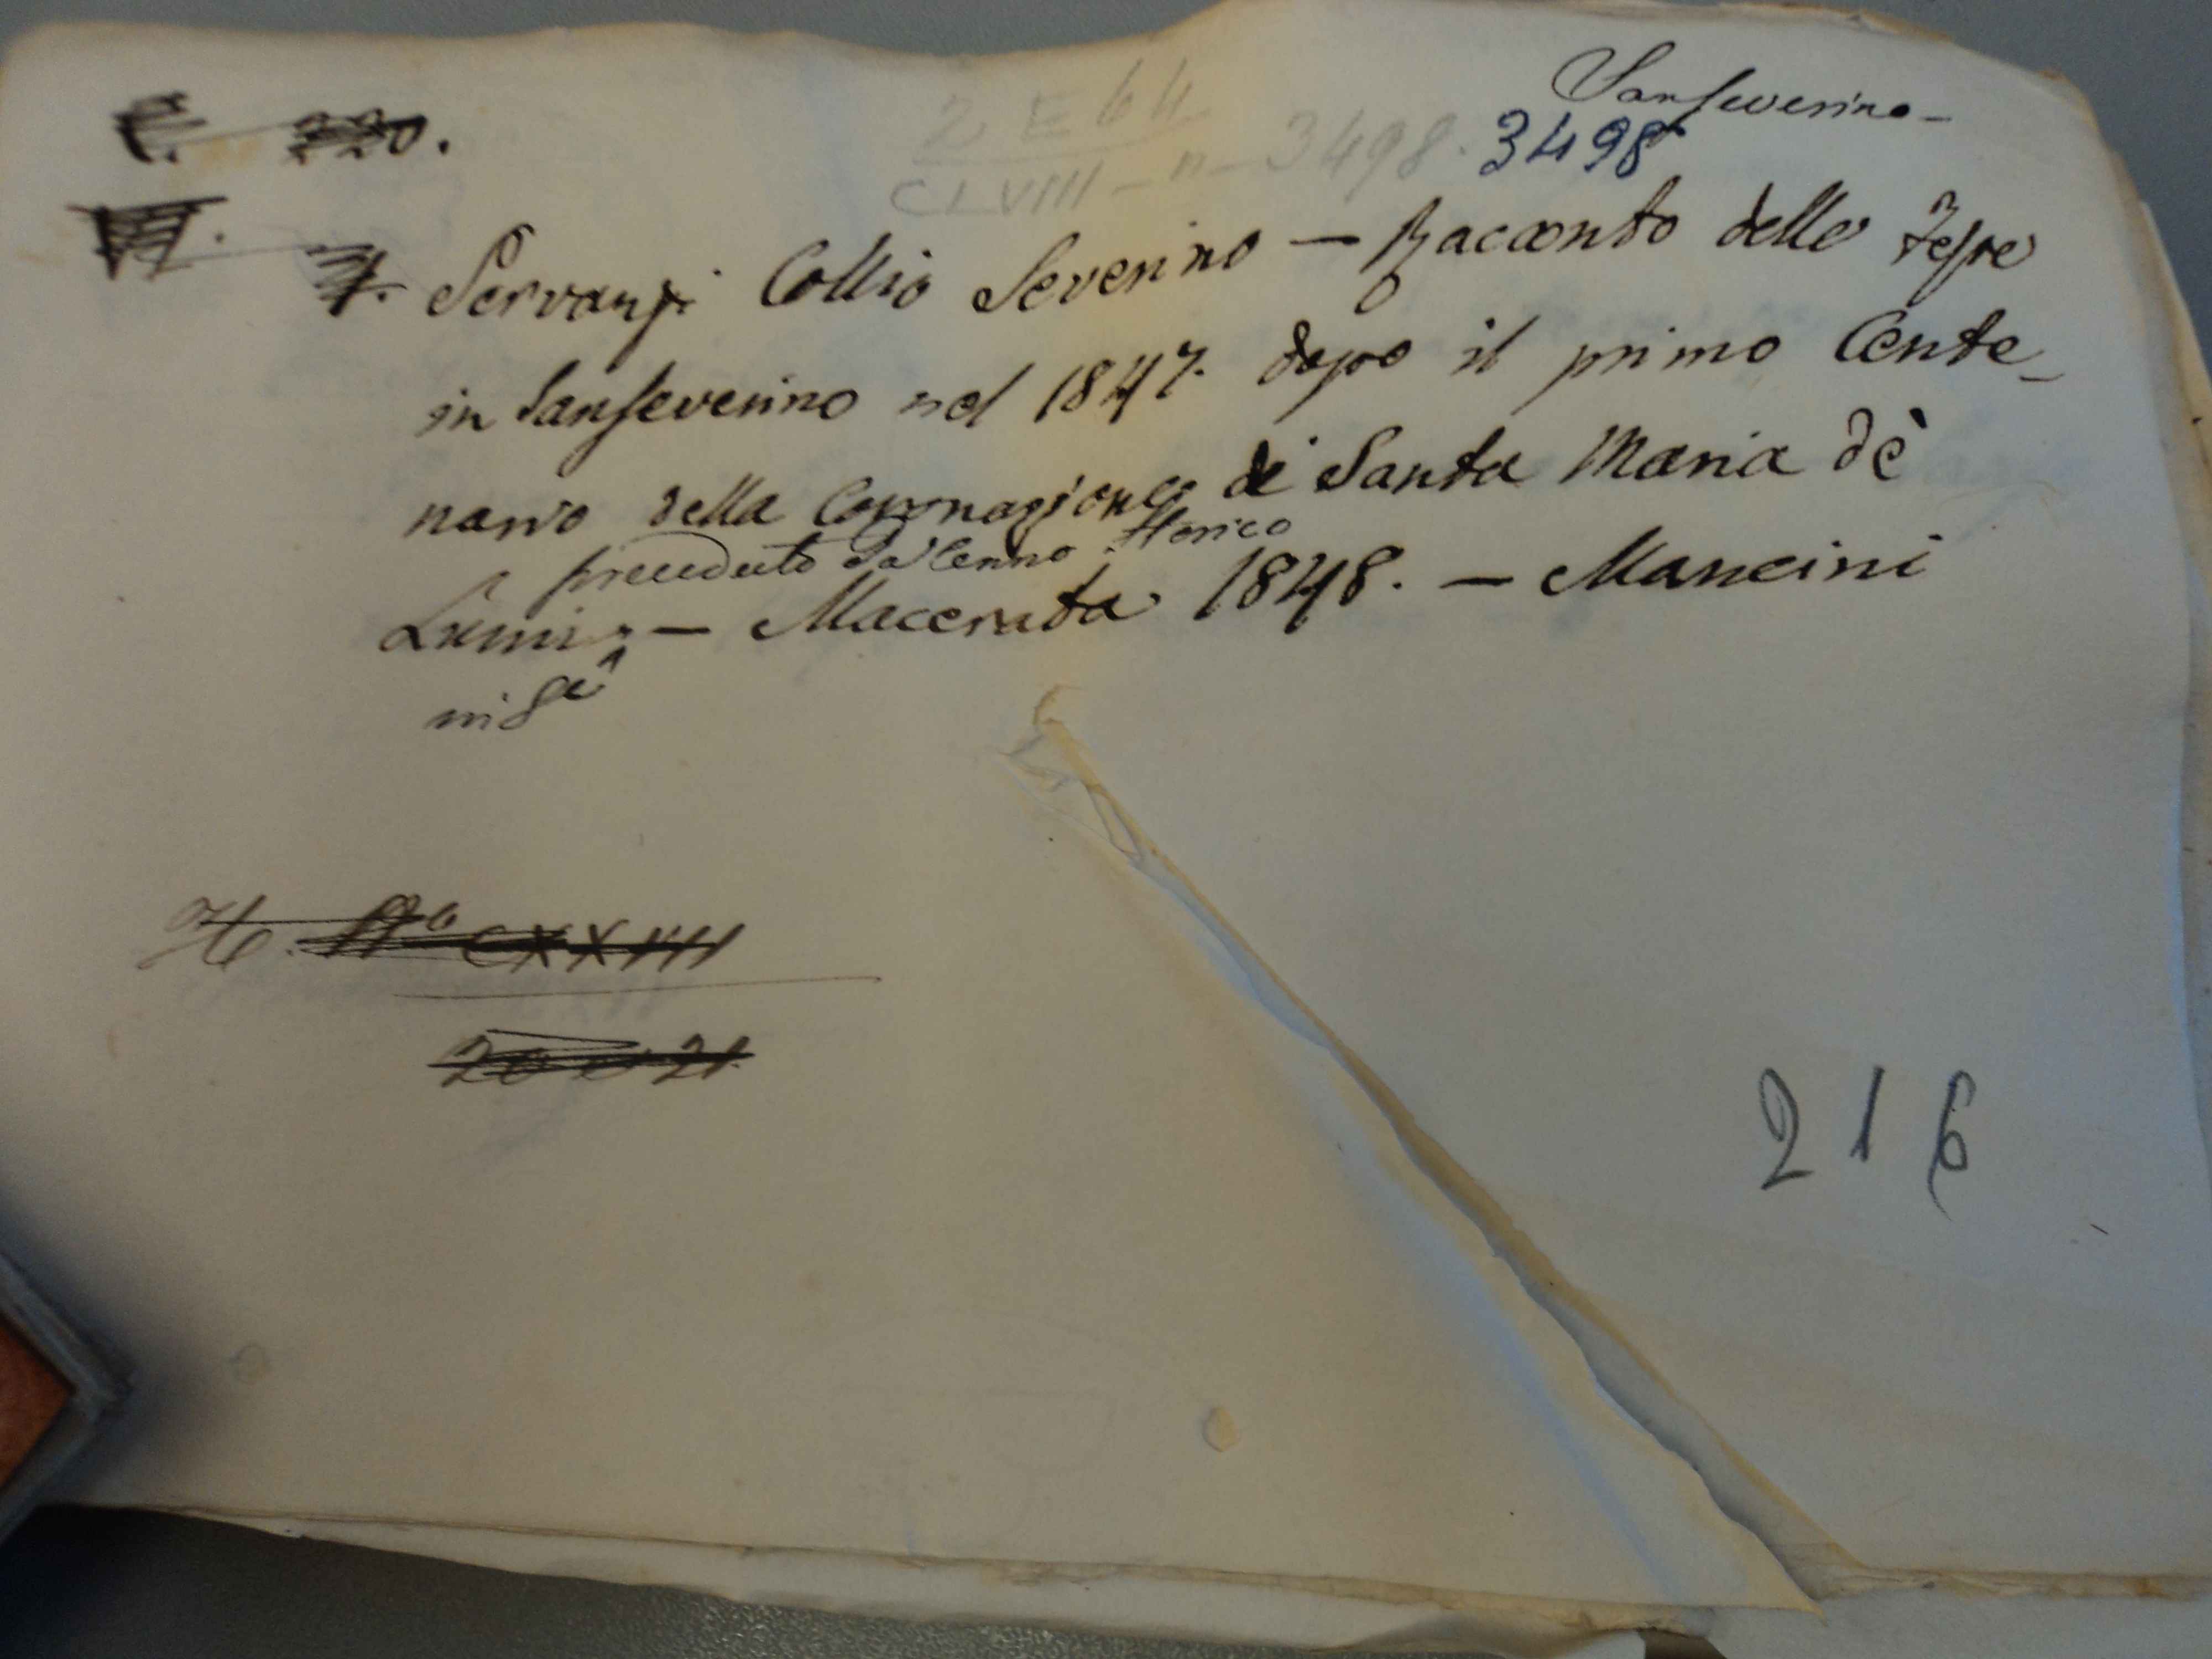 Sanseverino -
E. 220.
2 E 64
CLVIII - n - 3498.
3498
7. Servanzi Collio Severino - Racconto delle Feste
in Sanseverino nel 1847. dopo il primo Cente-
nario della Coronazione di Santa Maria dè
preceduto da Cenno Storico
Lumi - Macerata 1848. - Mancini
in 8°
H. CXXVIII
20 e 21.
216